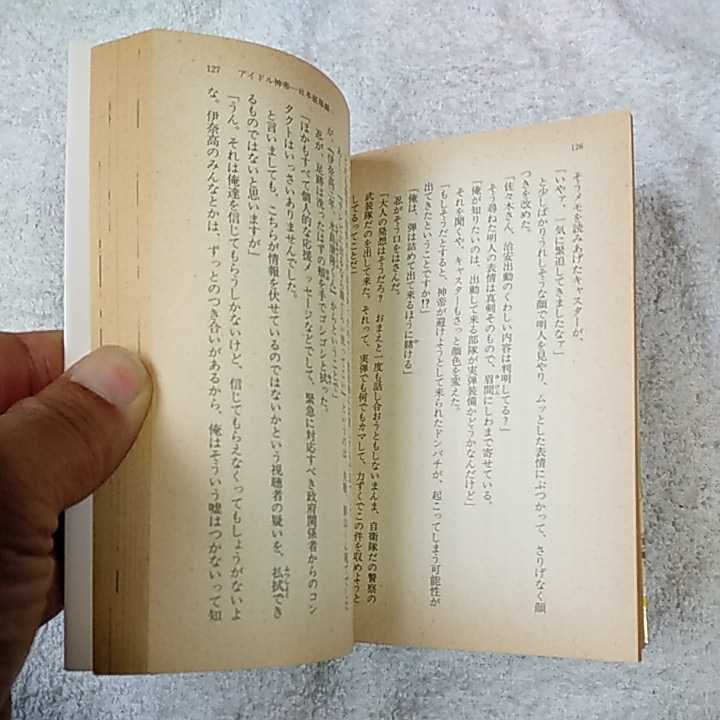 126
そうメモを読みあげたキャスターが、
「いやァ、一気に緊迫してきましたなァ」
と少しばかりうれしそうな顔で明人を見やり、ムッとした表情にぶつかって、さりげなく顔
つきを改めた。
「佐々木さん、治安出動のくわしい内容は判明してる?」
そう尋ねた明人の表情は真剣そのもので、眉間にしわまで寄せている。
「俺が知りたいのは、出動して来る部隊が実弾装備かどうかなんだけど」
それを聞くや、キャスターもさっと顔色を変えた。
「もしそうだとすると、神帝が避けようとして来られたドンパチが、起こってしまう可能性が
出てきたということですか!?」
「俺は、弾は詰めて出て来るほうに賭ける」
忍がそう口をはさんだ。
「大人の発想はそうだろ? おまえと一度も話し合おうともしないまんま、自衛隊だの警察の
武装隊だのを出して来た。それって、実弾でも何でもカマして、力ずくでこの件を収めようと
してるってことだ
127 アイドル神帝
が、「伊奈高三年、
忍が、足跡は洗ったはずの頬を手でゴシゴシと拭った。
「ほかもすべて個人的な応援メッセージなどでして、緊急に対応すべき政府関係者からのコン
タクトはいっさいありませんでした。
と言いましても、こちらが情報を伏せているのではないかという視聴者の疑いを、払拭でき
るものではないと思いますが」
「うん。それは俺達を信じてもらうしかないけど、信じてもらえなくってもしょうがないよ
な。伊奈高のみんなとかは、ずっとのつき合いがあるから、俺はそういう嘘はつかないって知